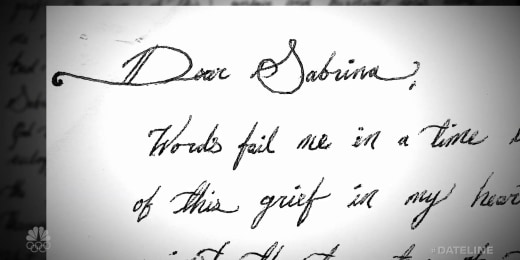 Dear Sabrina,
Words fail me in a time
of this grief in my heart
DATELINE